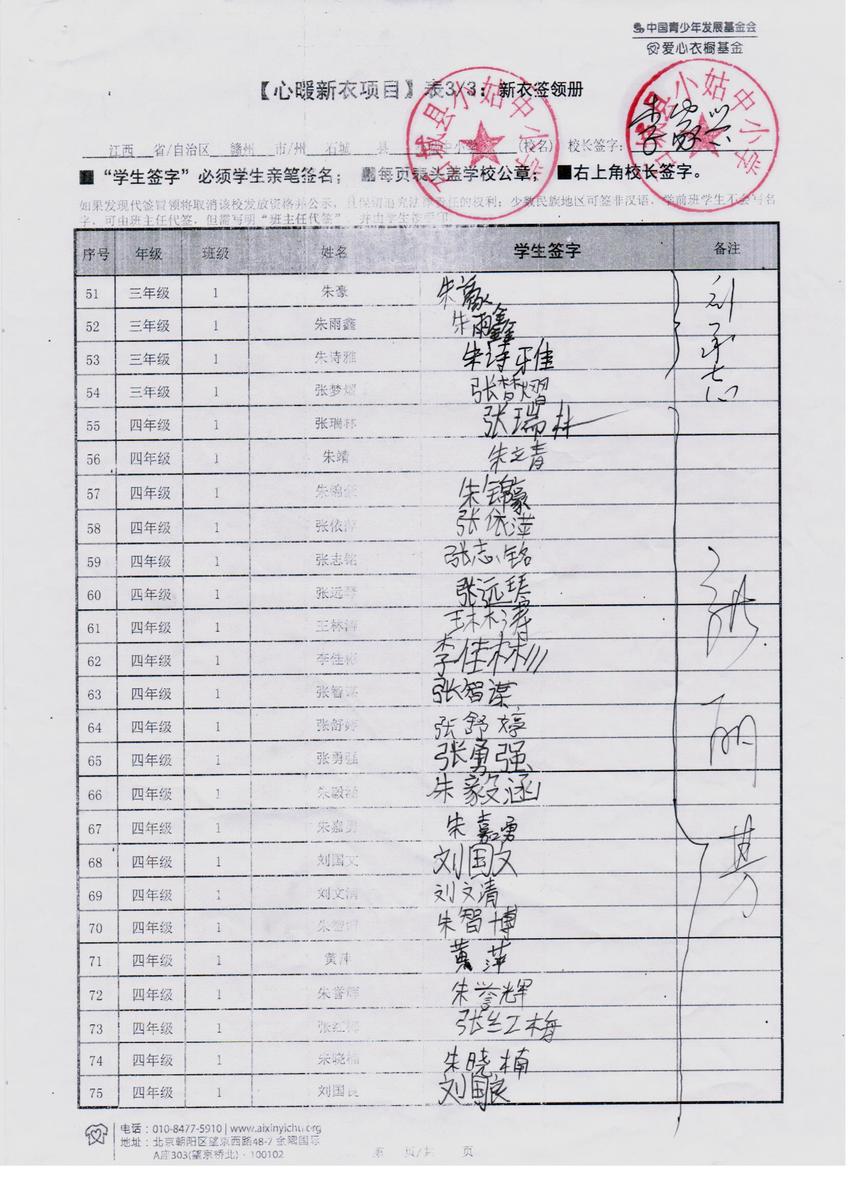 中国青少年发展基金会
爱心衣橱基金
【心暖新衣项目】表3/3：新衣签领册
江西 省/自治区 赣州 市/州 石城 县 中小学 (校名) 校长签字：
■ “学生签字”必须学生亲笔签名； ■每页表头盖学校公章； ■右上角校长签字。
如果发现代签冒领将取消该校发放资格并公示，且保留追究法律责任的权利；少数民族地区可签非汉语，学前班学生不会写名
字，可由班主任代签，但需写明“班主任代签”，并由学生按手印
县小姑中小学
县小姑中小学
序号 年级 班级 姓名 学生签字 备注
51 三年级 1 朱豪 朱豪
52 三年级 1 朱雨鑫 朱雨鑫
53 三年级 1 朱诗雅 朱诗雅
54 三年级 1 张梦熠 张梦熠
55 四年级 1 张瑞林 张瑞林
56 四年级 1 朱靖 朱靖
57 四年级 1 朱锦豪 朱锦豪
58 四年级 1 张依萍 张依萍
59 四年级 1 张志铭 张志铭
60 四年级 1 张远 张远
61 四年级 1 王林涛 王林
62 四年级 1 李佳彬 李佳彬
63 四年级 1 张智谋 张智谋
64 四年级 1 张舒婷 张舒婷
65 四年级 1 张勇强 张勇强
66 四年级 1 朱毅涵 朱毅涵
67 四年级 1 朱嘉勇 朱嘉勇
68 四年级 1 刘国文 刘国文
69 四年级 1 刘文清 刘文清
70 四年级 1 朱智博 朱智博
71 四年级 1 黄萍 黄萍
72 四年级 1 朱誉辉 朱誉辉
73 四年级 1 张红梅 张红梅
74 四年级 1 朱晓楠 朱晓楠
75 四年级 1 刘国良 刘国良
张丽芳
电话：010-8477-5910 | www.aixinyichu.org
地址：北京朝阳区望京西路48-7 金隅国际
A座303(望京桥北)·100102
第 页/共 页